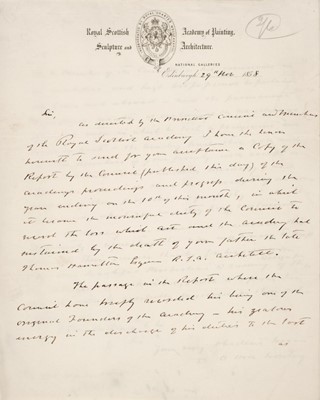 Royal Scottish Academy of Painting,
Sculpture and Architecture.
NATIONAL GALLERIES
Edinburgh 29th Nov. 1858
Sir,
as directed by the President Council and Members
of the Royal Scottish Academy I have the honor
herewith to send for your acceptance a Copy of the
Report by the Council (published this day) of the
Academys proceedings and progress during the
year ending on the 10th of this month, in which
it became the mournful duty of the Council to
record the loss which Art and the Academy had
sustained by the death of your father the late
Thomas Hamilton Esquire R.S.A. Architect.
The passage in the Report where the
Council have briefly recorded his being one of the
original Founders of the Academy – his zealous
energy in the discharge of his duties to the last
as